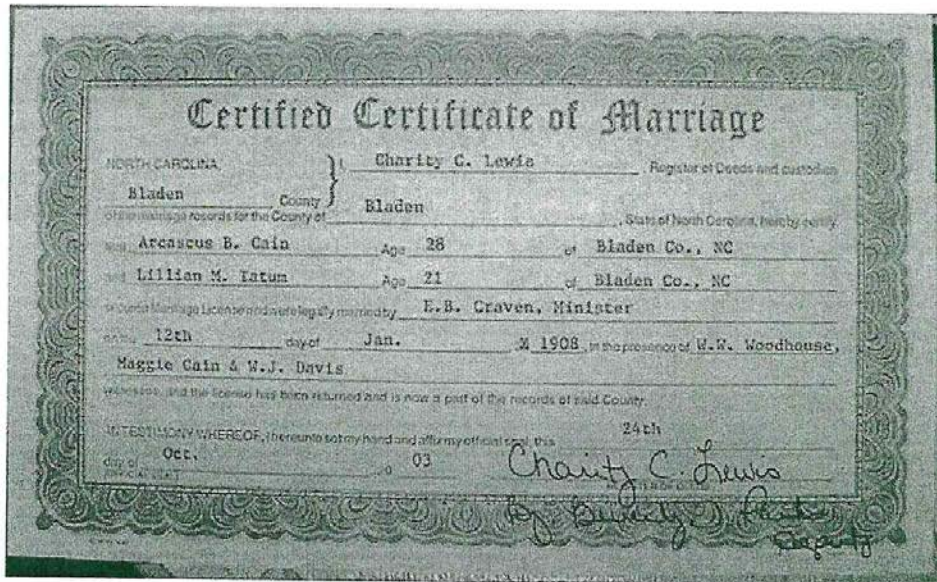 Certified Certificate of Marriage
NORTH CAROLINA,
Bladen County } I, Charity C. Lewis, Register of Deeds and custodian
of the marriage records for the County of Bladen, State of North Carolina, hereby certify
that Arcascus B. Cain Age 28 of Bladen Co., NC
and Lillian M. Tatum Age 21 of Bladen Co., NC
secured Marriage License and were legally married by E.B. Craven, Minister
on the 12th day of Jan. 1908, in the presence of W.W. Woodhouse,
Maggie Cain & W.J. Davis
witnesses, and the license has been returned and is now a part of the records of said County.
IN TESTIMONY WHEREOF, I hereunto set my hand and affix my official seal, this 24th
day of Oct. 03
Charity C. Lewis
By Beverly
Deputy